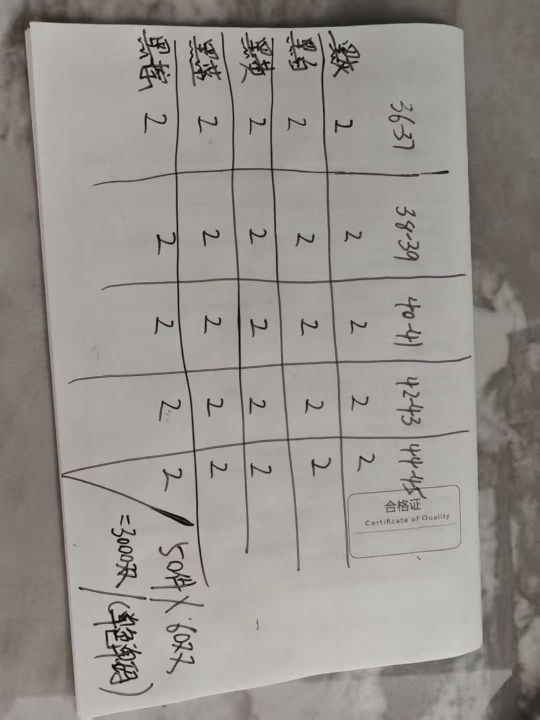 36-37 38-39 40-41 42-43 44-45
2 2 2 2 2
黑白 2 2 2 2 2
黑黄 2 2 2 2 2
黑蓝 2 2 2 2 2
2 2 2 2 2
50件×60双
=3000双/(单色单码)
合格证
Certificate of Quality